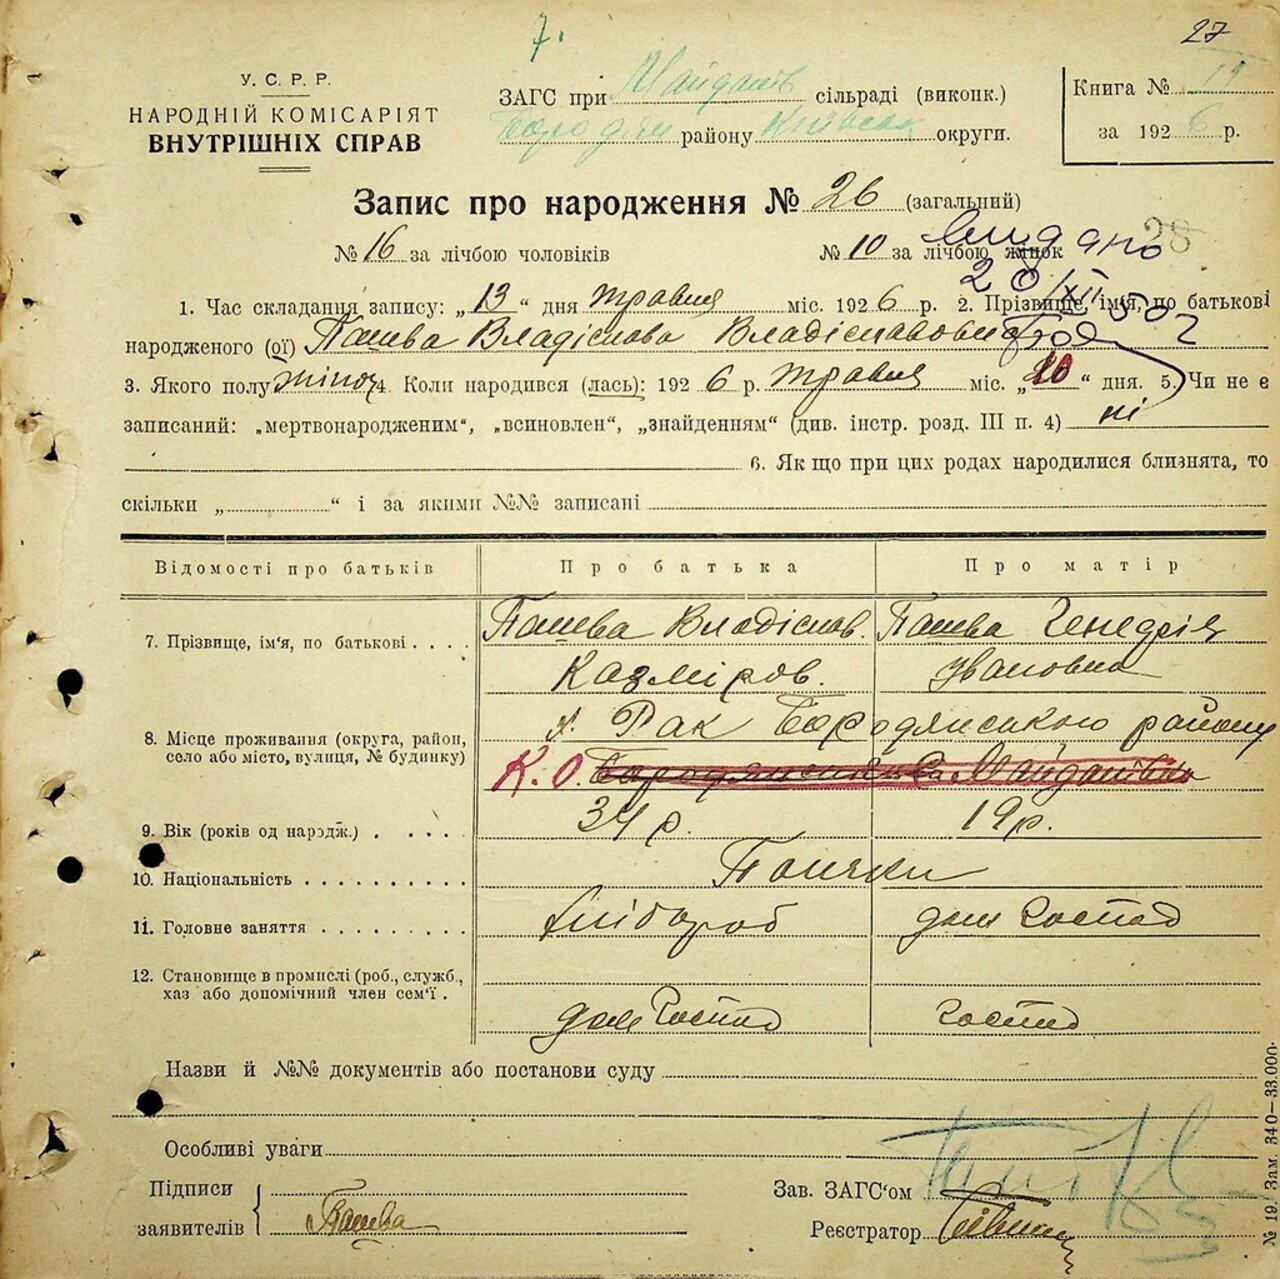 7.
27
У. С. Р. Р.
НАРОДНІЙ КОМІСАРІЯТ
ВНУТРІШНІХ СПРАВ
ЗАГС при Майданів сільраді (виконк.)
Бородян району Київськ округи.
Книга №
за 1926 р.
Запис про народження № 26 (загальний)
№ 16 за лічбою чоловіків № 10 за лічбою жінок
28
видано
20/XII 50 г
1. Час складання запису: „13“ дня травня міс. 1926 р. 2. Прізвище, ім'я, по батькові
народженого (ої) Пашва Владіслава Владіславовна
3. Якого полу жіноч 4. Коли народився (лась): 1926 р. травня міс. „10“ дня. 5. Чи не є
записаний: „мертвонародженим“, „всиновлен“, „знайденням“ (див. інстр. розд. III п. 4) ні
6. Як що при цих родах народилися близнята, то
скільки „ “ і за якими №№ записані
Відомості про батьків Про батька Про матір
7. Прізвище, ім'я, по батькові . . . . Пашва Владіслав. Пашва Генедрія
Казміров. Івановна
8. Місце проживання (округа, район, село або місто, вулиця, № будинку) х. Рак Бородянського району
К. О. Майданівка
9. Вік (років од народж.) . . . . . 34 р. 19 р.
10. Національність . . . . . . . . . . Поляки
11. Головне заняття . . . . . . . . . хлібороб дом господ
12. Становище в промислі (роб., служб., хаз або допомічний член сем'ї .
дом господ господ
Назви й №№ документів або постанови суду
Особливі уваги
Підписи
заявителів Пашва
Зав. ЗАГС'ом
Реєстратор
№ 19. Зам. 340—33.000.